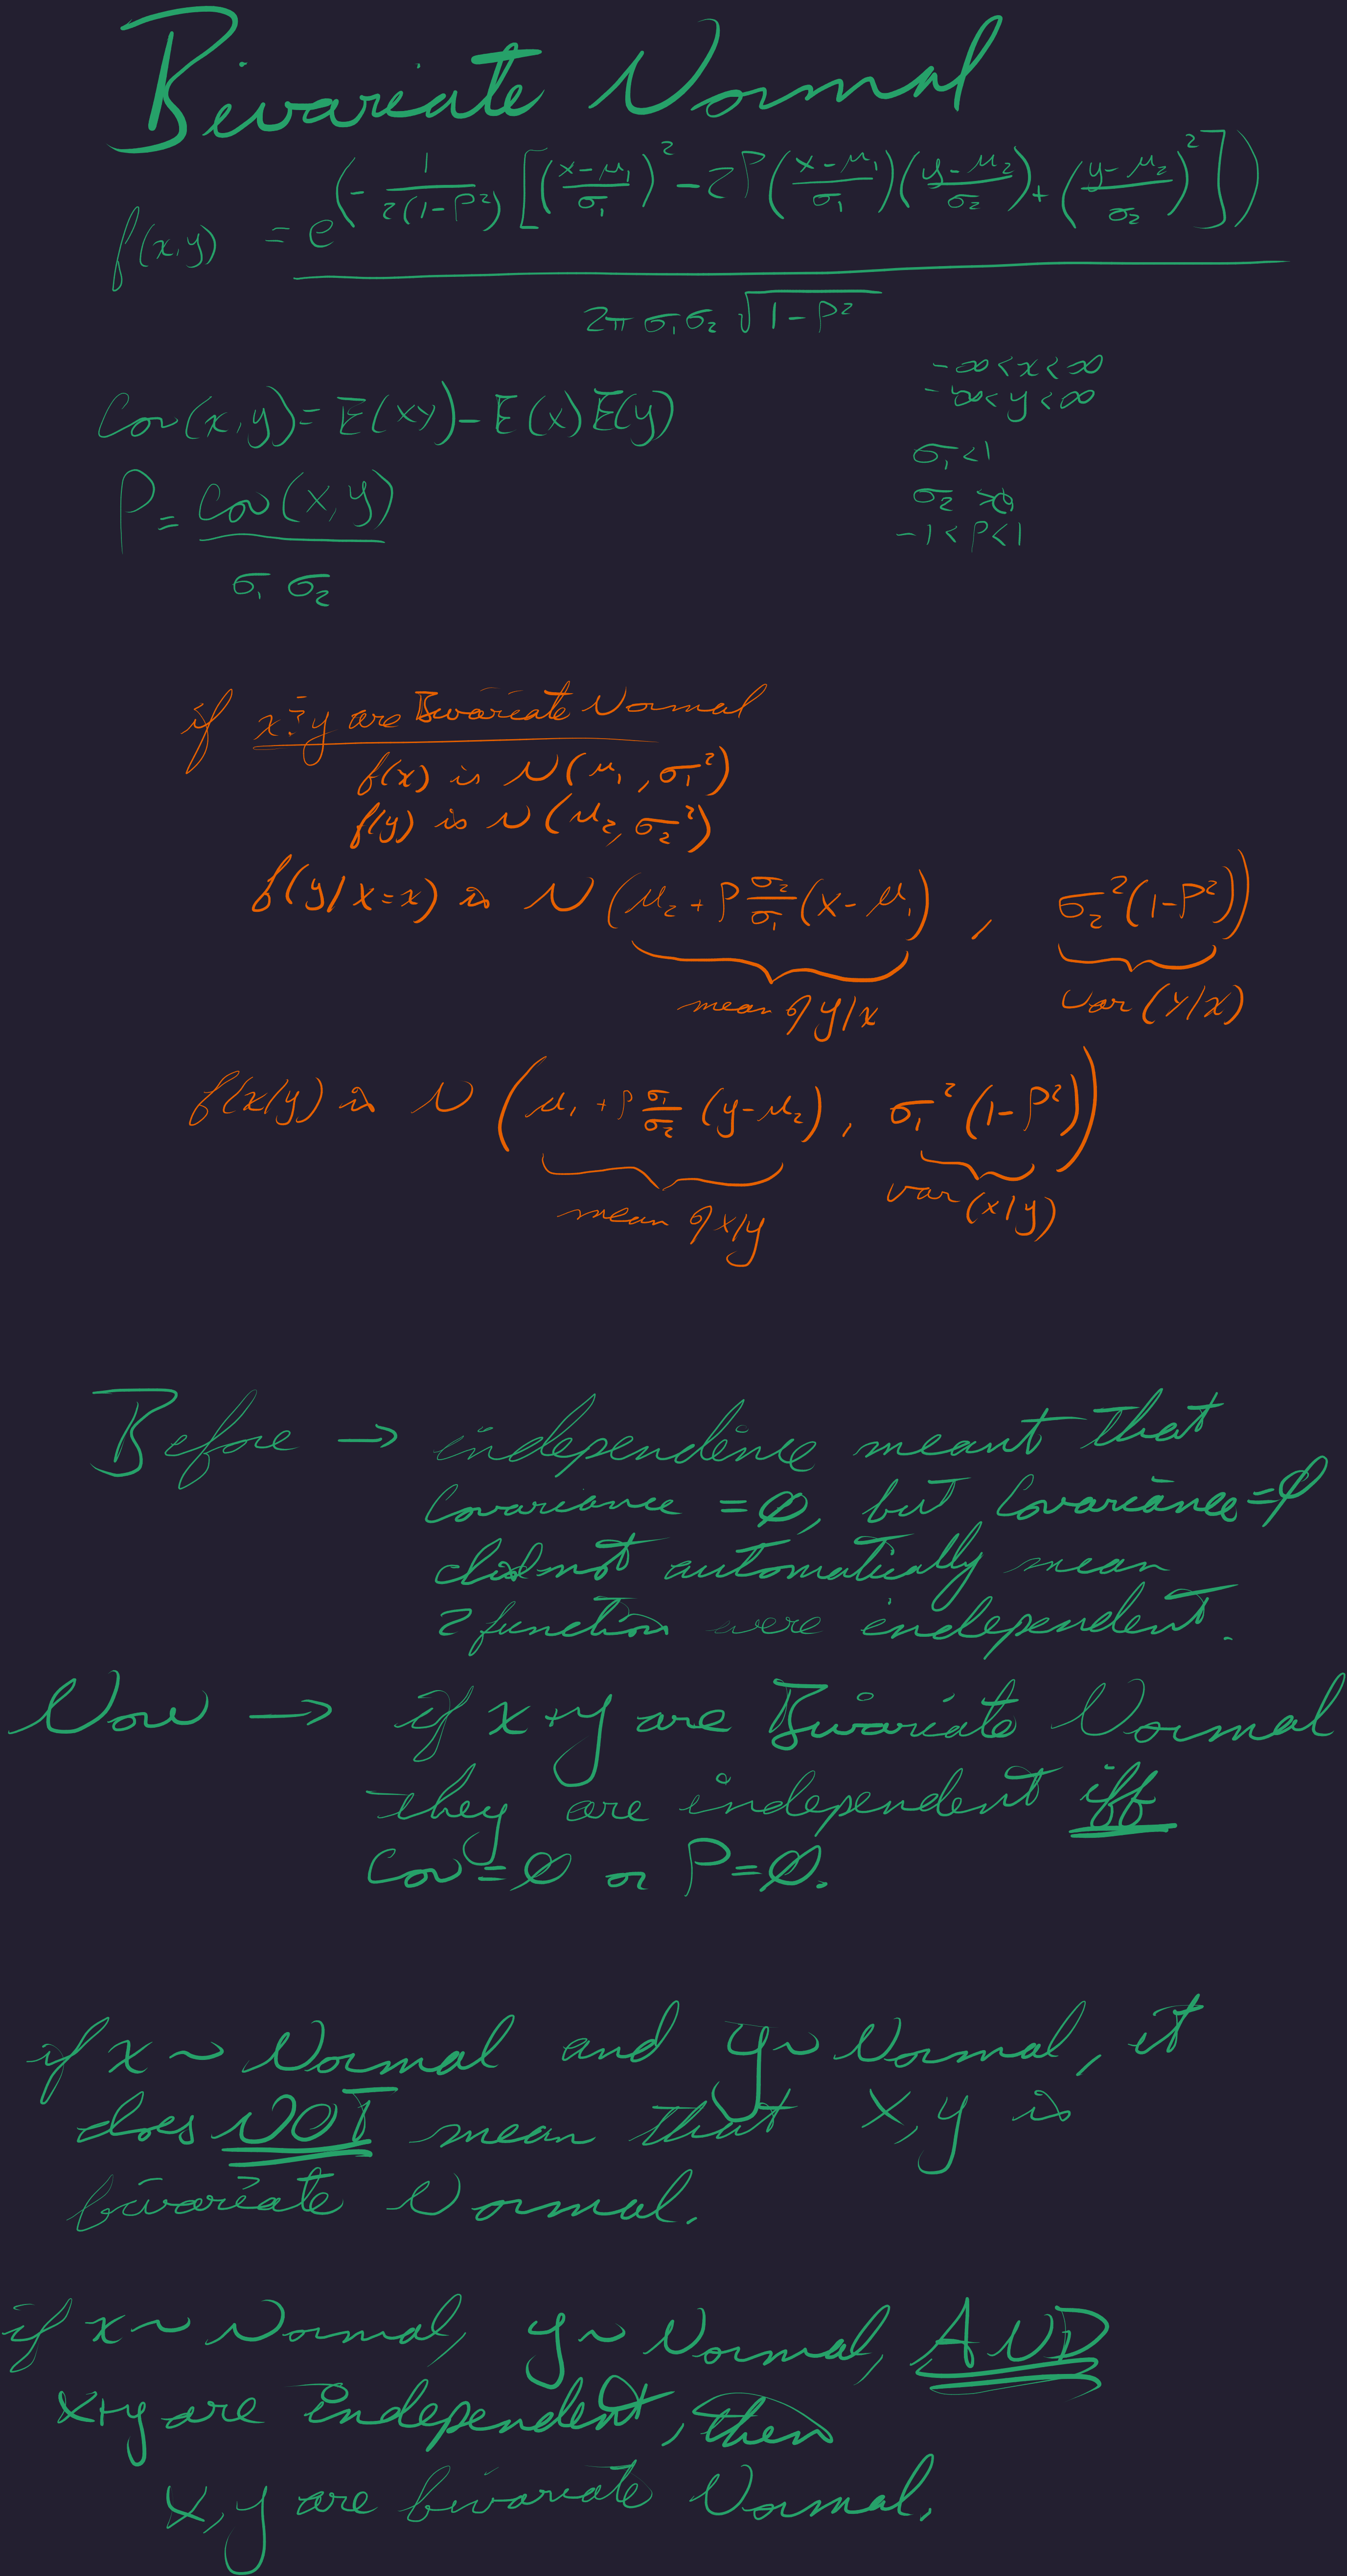 Bivariate Normal
f(x,y) = e^(-1/(2(1-ρ²)) [((x-μ₁)/σ₁)² - 2ρ((x-μ₁)/σ₁)((y-μ₂)/σ₂) + ((y-μ₂)/σ₂)²])
2π σ₁σ₂ √(1-ρ²)
-∞<x<∞
-∞<y<∞
Cov(x,y) = E(xy) - E(x)E(y)
σ₁<1
ρ = Cov(x,y)
σ₂ >
-1<ρ<1
σ₁ σ₂
if x & y are Bivariate Normal
f(x) is N(μ₁, σ₁²)
f(y) is N(μ₂, σ₂²)
f(y|X=x) is N(μ₂ + ρ σ₂/σ₁ (x-μ₁), σ₂²(1-ρ²))
mean of y|x var(y|x)
f(x|y) is N(μ₁ + ρ σ₁/σ₂ (y-μ₂), σ₁²(1-ρ²))
mean of x|y var(x|y)
Before → independence meant that
Covariance = 0, but Covariance = 0
did not automatically mean
2 function were independent.
Now → if x+y are Bivariate Normal
they are independent iff
Cov = 0 or ρ = 0.
if x ~ Normal and y ~ Normal, it
does NOT mean that x,y is
bivariate Normal.
if x ~ Normal, y ~ Normal, AND
x+y are independent, then
x,y are bivariate Normal.